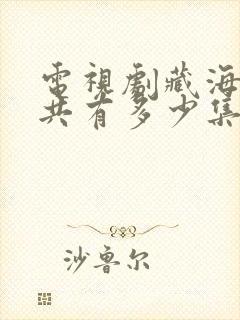 電視劇藏海
共有多少集
沙鲁尔